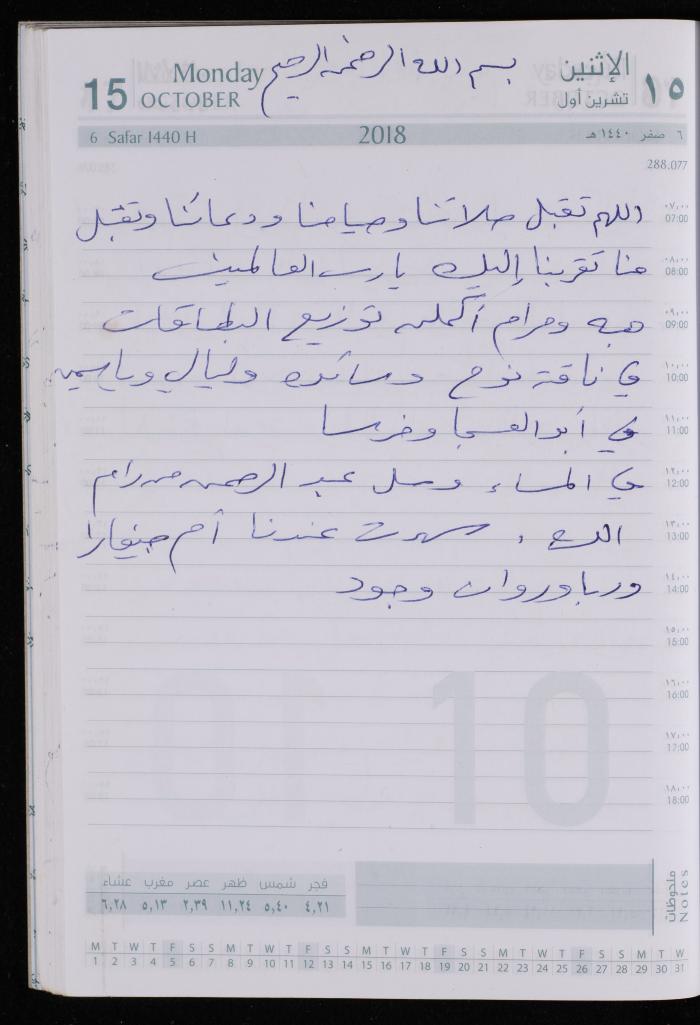 15 Monday OCTOBER
بسم الله الرحمن الرحيم
الإثنين ١٥ تشرين أول
6 Safar 1440 H 2018 ٦ صفر ١٤٤٠هـ
288.077
اللهم تقبل صلاتنا وصيامنا ودعائنا وتقبل
منا تقربنا إليك يا رب العالمين
هبه ومرام أكملن توزيع البطاقات
في ناقة نوح وسائده وليالي وياسمين
في أبو العسجا وخرسا
في المساء وصل عبد الرحمن من رام
الله . سهرت عندنا أم جيفارا
وربا وروان وجود
٠٧,٠٠ 07:00
٠٨,٠٠ 08:00
٠٩,٠٠ 09:00
١٠,٠٠ 10:00
١١,٠٠ 11:00
١٢,٠٠ 12:00
١٣,٠٠ 13:00
١٤,٠٠ 14:00
١٥,٠٠ 15:00
١٦,٠٠ 16:00
١٧,٠٠ 17:00
١٨,٠٠ 18:00
10
فجر شمس ظهر عصر مغرب عشاء
٤,٢١ ٥,٤٠ ١١,٢٤ ٢,٣٩ ٥,١٣ ٦,٢٨
ملحوظات
Notes
M T W T F S S M T W T F S S M T W T F S S M T W T F S S M T W
1 2 3 4 5 6 7 8 9 10 11 12 13 14 15 16 17 18 19 20 21 22 23 24 25 26 27 28 29 30 31